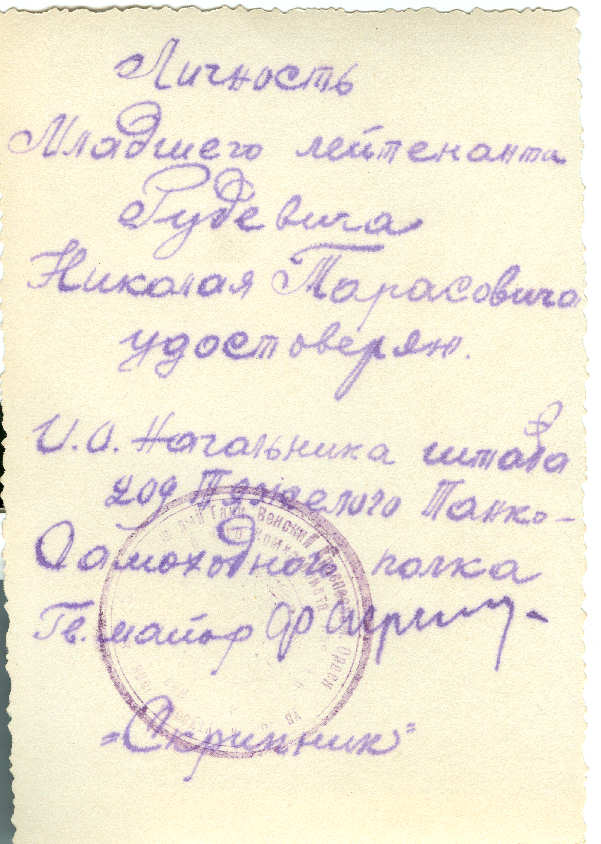 Личность
Младшего лейтенанта
Рудевича
Николая Тарасовича
удостоверяю.
И.О. Начальника штаба
Тяжелого Танко-
Самоходного полка
Гв. майор
"Скрипник"
Венский